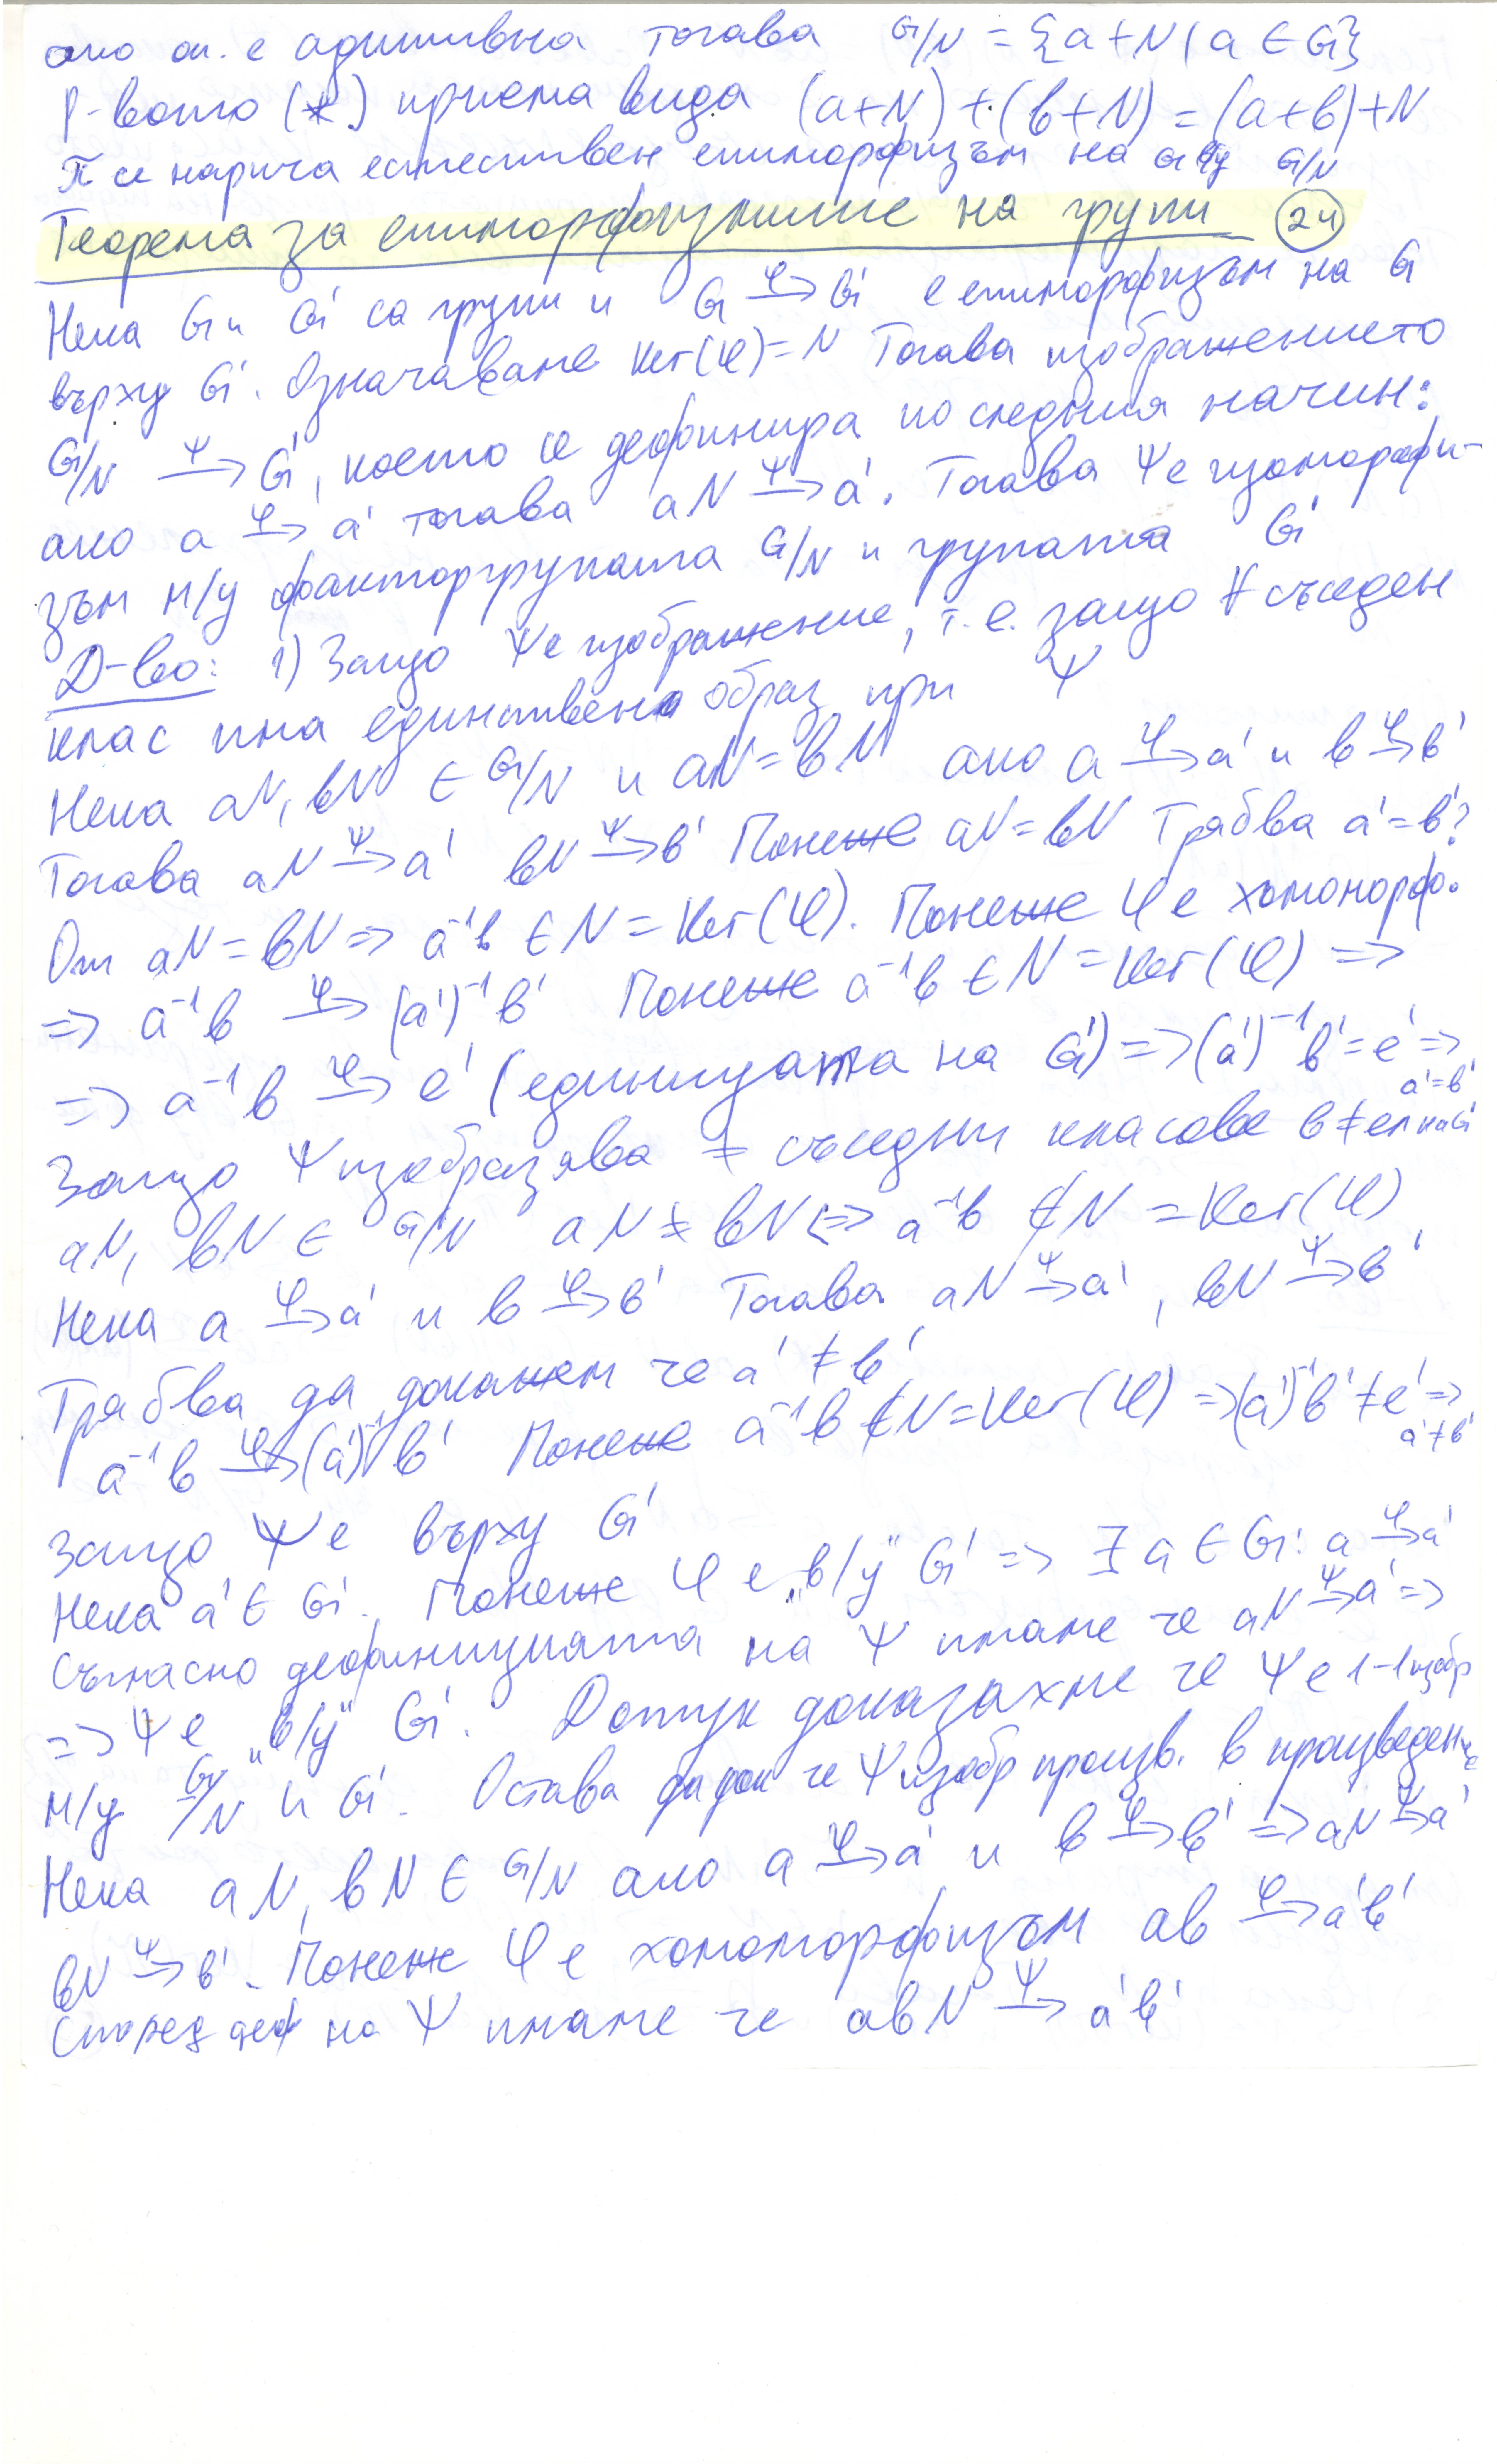 ако оп. е адитивна тогава G/N = {a+N | a ∈ G}
Р-вото (*) приема вида (a+N) + (b+N) = (a+b)+N
π се нарича естествен епиморфизъм на G в/у G/N
Теорема за епиморфизмите на групи (24)
Нека G и G' са групи и G →φ G' е епиморфизъм на G
върху G'. Означаваме Ker(φ) = N Тогава изображението
G/N →ψ G', което се дефинира по следния начин:
ако a →φ a' тогава aN →ψ a'. Тогава ψ е изоморфи-
зъм м/у факторгрупата G/N и групата G'
Д-во: 1) Защо ψ е изображение, т.е. защо ∀ съседен
клас има единствен образ при ψ
Нека aN, bN ∈ G/N и aN = bN ако a →φ a' и b →φ b'
Тогава aN →ψ a' bN →ψ b' Понеже aN = bN Трябва a' = b'?
От aN = bN => a⁻¹b ∈ N = Ker(φ). Понеже φ е хомоморф.
=> a⁻¹b →φ (a')⁻¹b' Понеже a⁻¹b ∈ N = Ker(φ) =>
=> a⁻¹b →φ e' (единицата на G') => (a')⁻¹b' = e' => a' = b'
Защо ψ изобразява ≠ съседни класове в ≠ ел на G'
aN, bN ∈ G/N aN ≠ bN <=> a⁻¹b ∉ N = Ker(φ)
Нека a →φ a' и b →φ b' Тогава aN →ψ a', bN →ψ b'
Трябва да докажем че a' ≠ b'
a⁻¹b →φ (a')⁻¹b' Понеже a⁻¹b ∉ N = Ker(φ) => (a')⁻¹b' ≠ e' => a' ≠ b'
Защо ψ е върху G'
Нека a' ∈ G'. Понеже φ е „в/у" G' => ∃ a ∈ G: a →φ a'
Съгласно дефиницията на ψ имаме че aN →ψ a' =>
=> ψ е „в/у" G'. Дотук доказахме че ψ е 1-1 изобр
м/у G/N и G'. Остава да док че ψ изобр произв. в произведение
Нека aN, bN ∈ G/N ако a →φ a' и b →φ b' => aN →ψ a'
bN →ψ b'. Понеже φ е хомоморфизъм ab →φ a'b'
Според деф на ψ имаме че abN →ψ a'b'